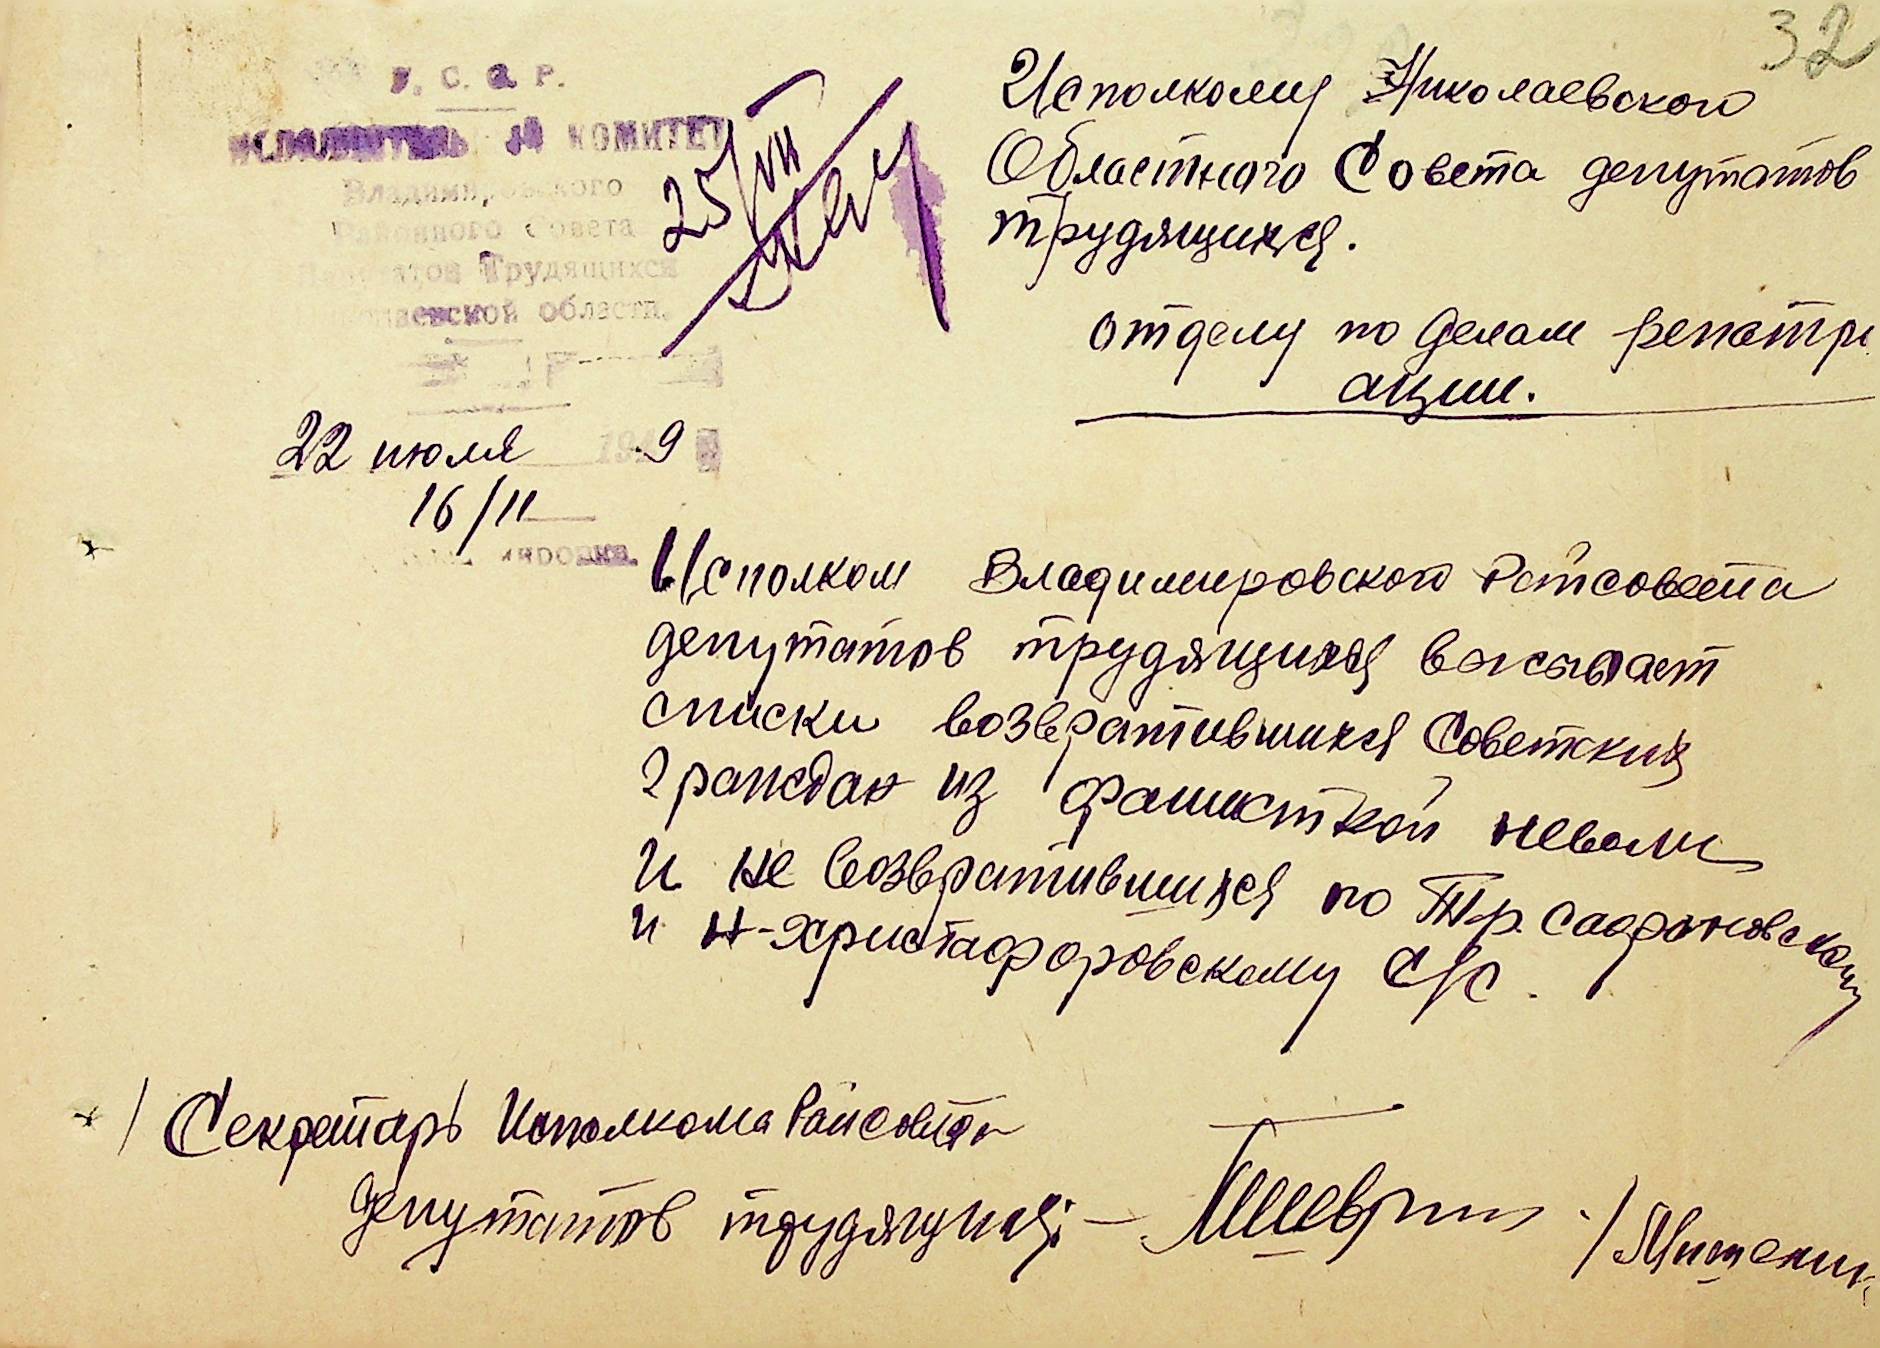 32
У. С. С. Р.
ИСПОЛНИТЕЛЬНЫЙ КОМИТЕТ
Владимировского
Районного Совета
Депутатов Трудящихся
Николаевской области.
25/VII
22 июля 194 9
16/II
Исполкому Николаевского
Областного Совета депутатов
трудящихся.
отделу по делам репатри
ации.
Исполком Владимировского Райсовета
депутатов трудящихся высылает
списки возвратившихся Советских
граждан из фашисткой неволи
и не возвратившихся по Тр. сафоновскому
и Н-христафоровскому С/С.
/ Секретарь Исполкома Райсовета
депутатов трудящихся: —